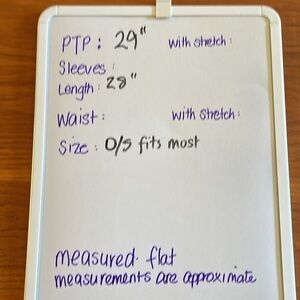 PTP : 29" with stretch :
Sleeves :
Length : 28"
Waist : with stretch :
Size : O/S fits most
measured flat
measurements are approximate